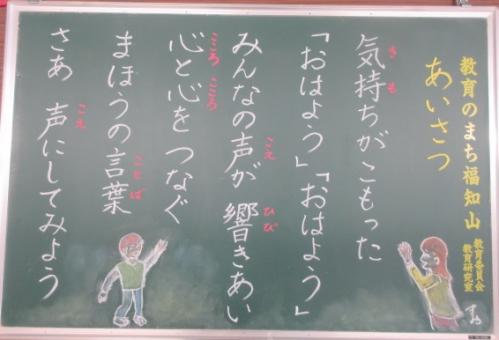 教育のまち福知山
教育委員会
教育研究室
あいさつ
気持ちがこもった
き も
「おはよう」「おはよう」
みんなの声が響きあい
こえ ひび
心と心をつなぐ
こころ こころ
まほうの言葉
ことば
さあ 声にしてみよう
こえ